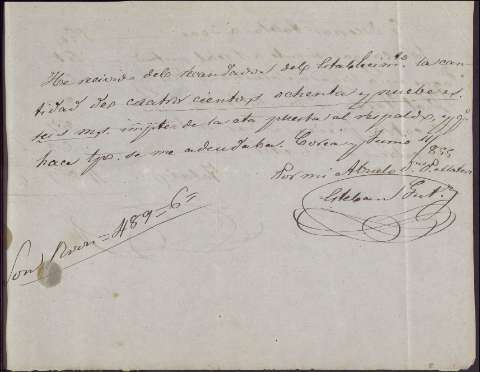 He recivido del recaudador del establecimto. la can-
tidad de cuatro cientos ochenta y nuebe rs.
seis ms. importe de la cta. puesta al respaldo, y q.e
hace tpo. se me adeudaba. Coria y Junio 4/855
Por mi Abuelo
Esteban Gut.
Son Rvon = 489 - 6 ms